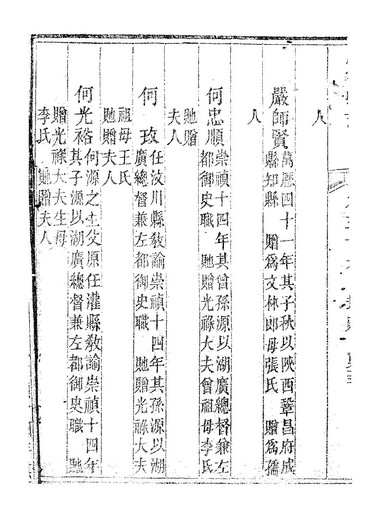 人
嚴師賢 萬曆四十一年其子秋以陝西鞏昌府成
縣知縣 贈爲文林郎母張氏 贈爲孺
人
何忠順 崇禎十四年其曾孫源以湖廣總督兼左
都御史職 貤贈光祿大夫曾祖母李氏
貤贈
夫人
何 玫 任汶川縣敎諭崇禎十四年其孫源以湖
廣總督兼左都御史職 貤贈光祿大夫
祖母王氏
貤贈夫人
何光裕 何源之生父原任灌縣敎諭崇禎十四年
其子源以湖廣總督兼左都御史職 貤
贈光祿大夫生母
李氏 貤贈夫人